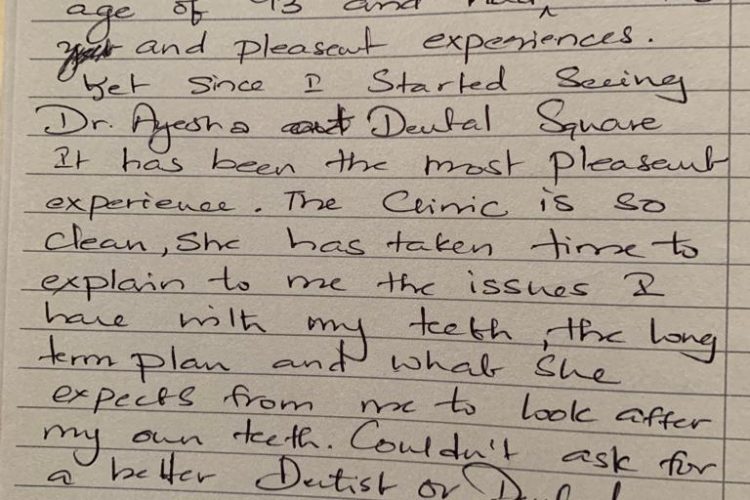 age of 43 and had
and pleasent experiences.
Yet since I started seeing
Dr. Ayesha at Dental Square
It has been the most pleasent
experience. The Clinic is so
clean, she has taken time to
explain to me the issues I
have with my teeth, the long
term plan and what she
expects from me to look after
my own teeth. Couldn't ask for
a better Dentist or